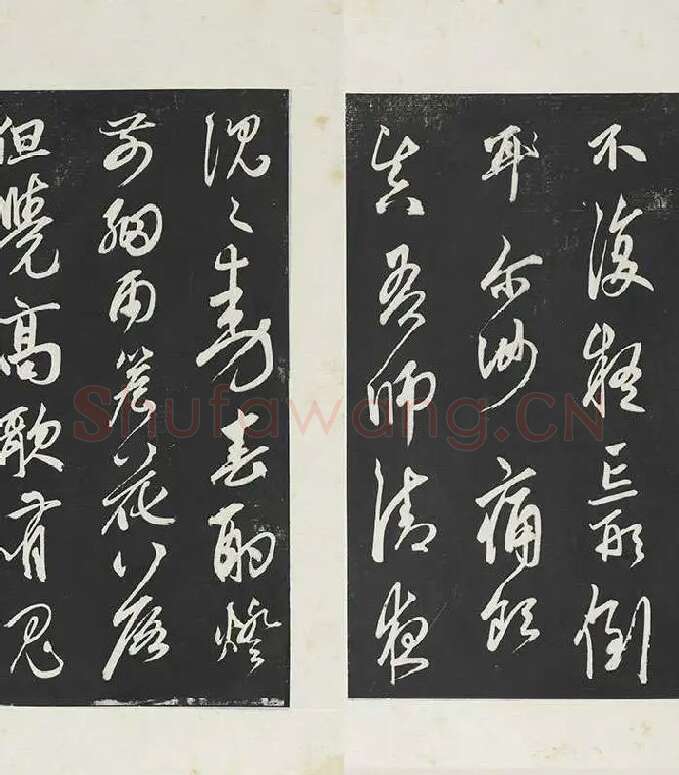 不復疑忘形倒
耳尔汝痛飲
真吾師清夜
沉々動春酌燈
前細雨簷花落
但覺高歌有鬼
Shufawang.CN